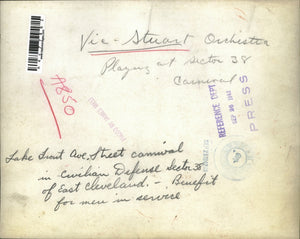 Vic-Stuart Orchestra
Playing at Sector 38
Carnival
A850
REFERENCE DEPT
SEP 20 1943
PRESS
Lake Front Ave. Street carnival
in Civilian Defense Sector 38
of East Cleveland. - Benefit
for men in service